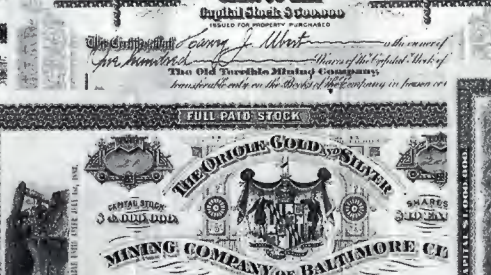 Capital Stock $500.000
ISSUED FOR PROPERTY PURCHASED
This Certifies that Larry J. Ubert is the owner of
five hundred Shares of the Capital Stock of
The Old Terrible Mining Company,
transferable only on the Books of the Company in person or
FULL PAID STOCK
THE ORIOLE GOLD AND SILVER
CAPITAL STOCK
SHARES
$10 EA
MINING COMPANY OF BALTIMORE CI
CAPITAL $1.000.000.